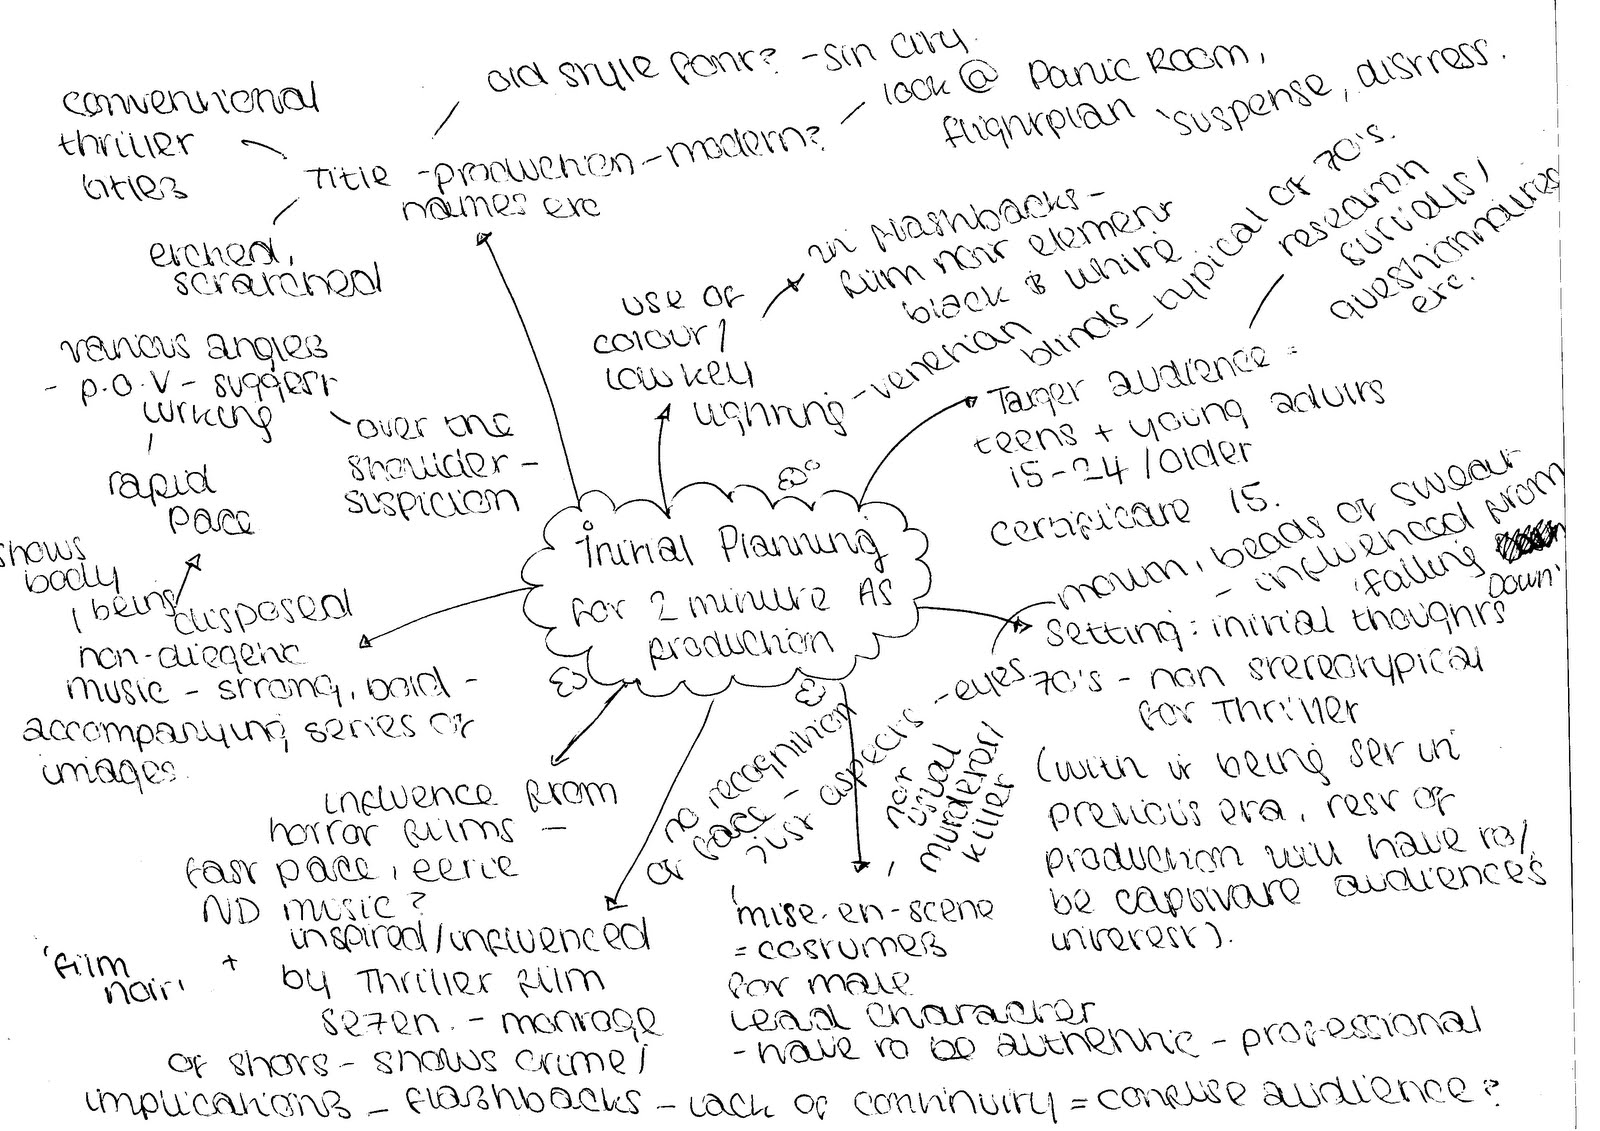 Initial Planning
for 2 minute AS
production
conventional
thriller
titles
Title - production - modern?
names etc
old style font? - Sin City.
look @ Panic Room,
flightplan 'suspense, distress.
etched,
scratched
use of
colour /
low key
lighting - venetian
blinds - typical of 70's.
in flashbacks -
film noir element
black & white
Target audience =
teens + young adults
15-24 / older
certificate 15.
research
surveys /
questionnaires
etc.
Setting: initial thoughts
70's - non stereotypical
for Thriller
(with it being set in
previous era, rest of
production will have to /
be captivate audiences
interest).
'mise-en-scene
= costumes
for male
lead character
- have to be authentic - professional
, not
usual
murderer /
killer
no recognition
of face -
just aspects - eyes
mouth, beads of sweat
- influenced from
'falling
Down'
inspired / influenced
by Thriller film
Se7en. - montage
of shots - shows crime /
implications - flashbacks - lack of continuity = confuse audience?
influence from
horror films -
fast pace, eerie
ND music?
+
'film
noir'
non-diegetic
music - strong, bold -
accompanying series of
images.
shows
body
being
disposed
rapid
pace
various angles
- P.O.V - suggest
lurking
over the
shoulder -
suspicion